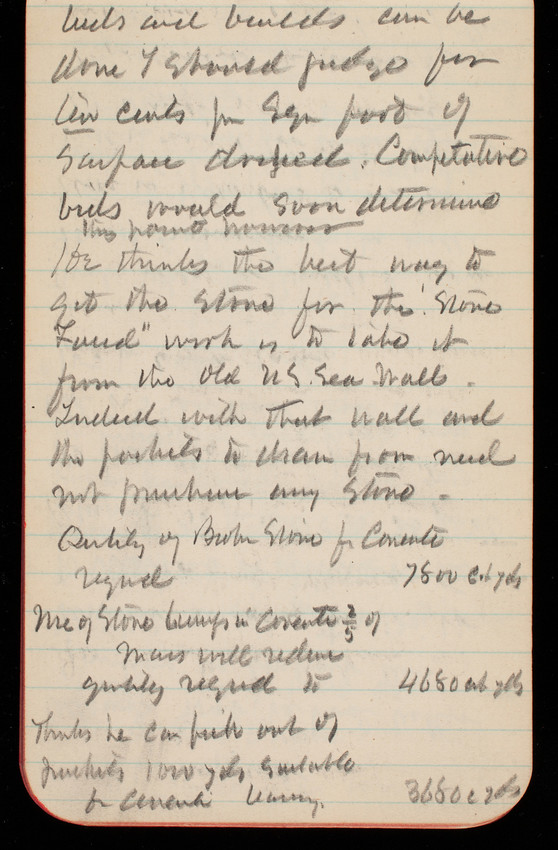 beds and builds can be
done I should judge for
ten cents per Sqr foot of
Surface dressed. Competative
bids would soon determine
this point, however
He thinks the best way to
get the stone for the "Stone
Faced" work is to take it
from the Old U.S. Sea Wall.
Indeed with that wall and
the pockets to draw from need
not purchase any Stone -
Qntity of Brokn Stone for Concrete
reqned 7800 c.b yds
Use of Stone lumps in Concrete 2/5 of
Mass will reduce
qntity reqned to 4680 cb yds
Thinks he can pick out of
pockets 1000 yds suitable
for concrete leaving. 3680 c yds